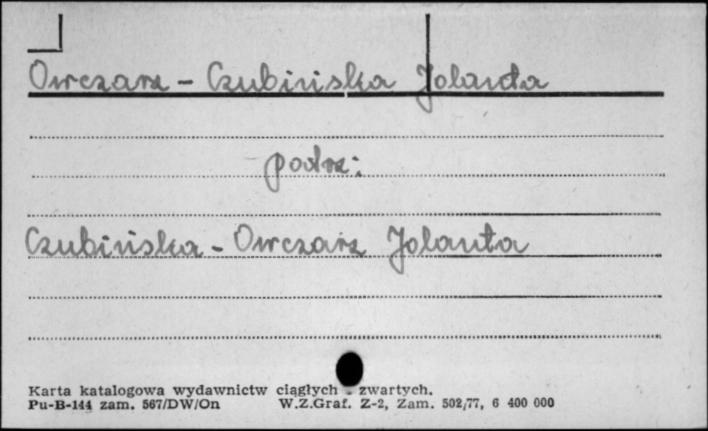 Owczarz - Czubińska Jolanta
podrz:
Czubińska - Owczarz Jolanta
Karta katalogowa wydawnictw ciągłych - zwartych.
Pu-B-144 zam. 567/DW/On W.Z.Graf. Z-2, Zam. 502/77, 6 400 000